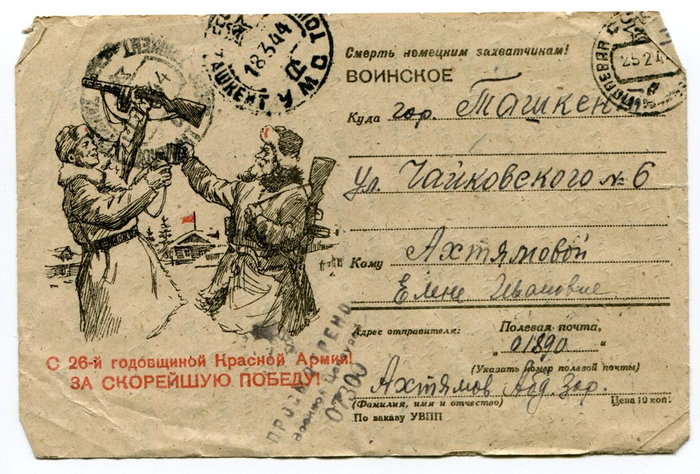 ТАШКЕНТ
18344
Смерть немецким захватчикам!
ВОИНСКОЕ
Куда гор. Ташкен
ул. Чайковского № 6
Кому Ахтямовой
Елене Ивановне
Адрес отправителя: Полевая почта,
„01890"
(Указать номер полевой почты)
Ахтямов
(Фамилия, имя и отчество) Цена 10 коп.
По заказу УВПП
С 26-й годовщиной Красной Армии!
ЗА СКОРЕЙШУЮ ПОБЕДУ!
ПРОСМОТРЕНО